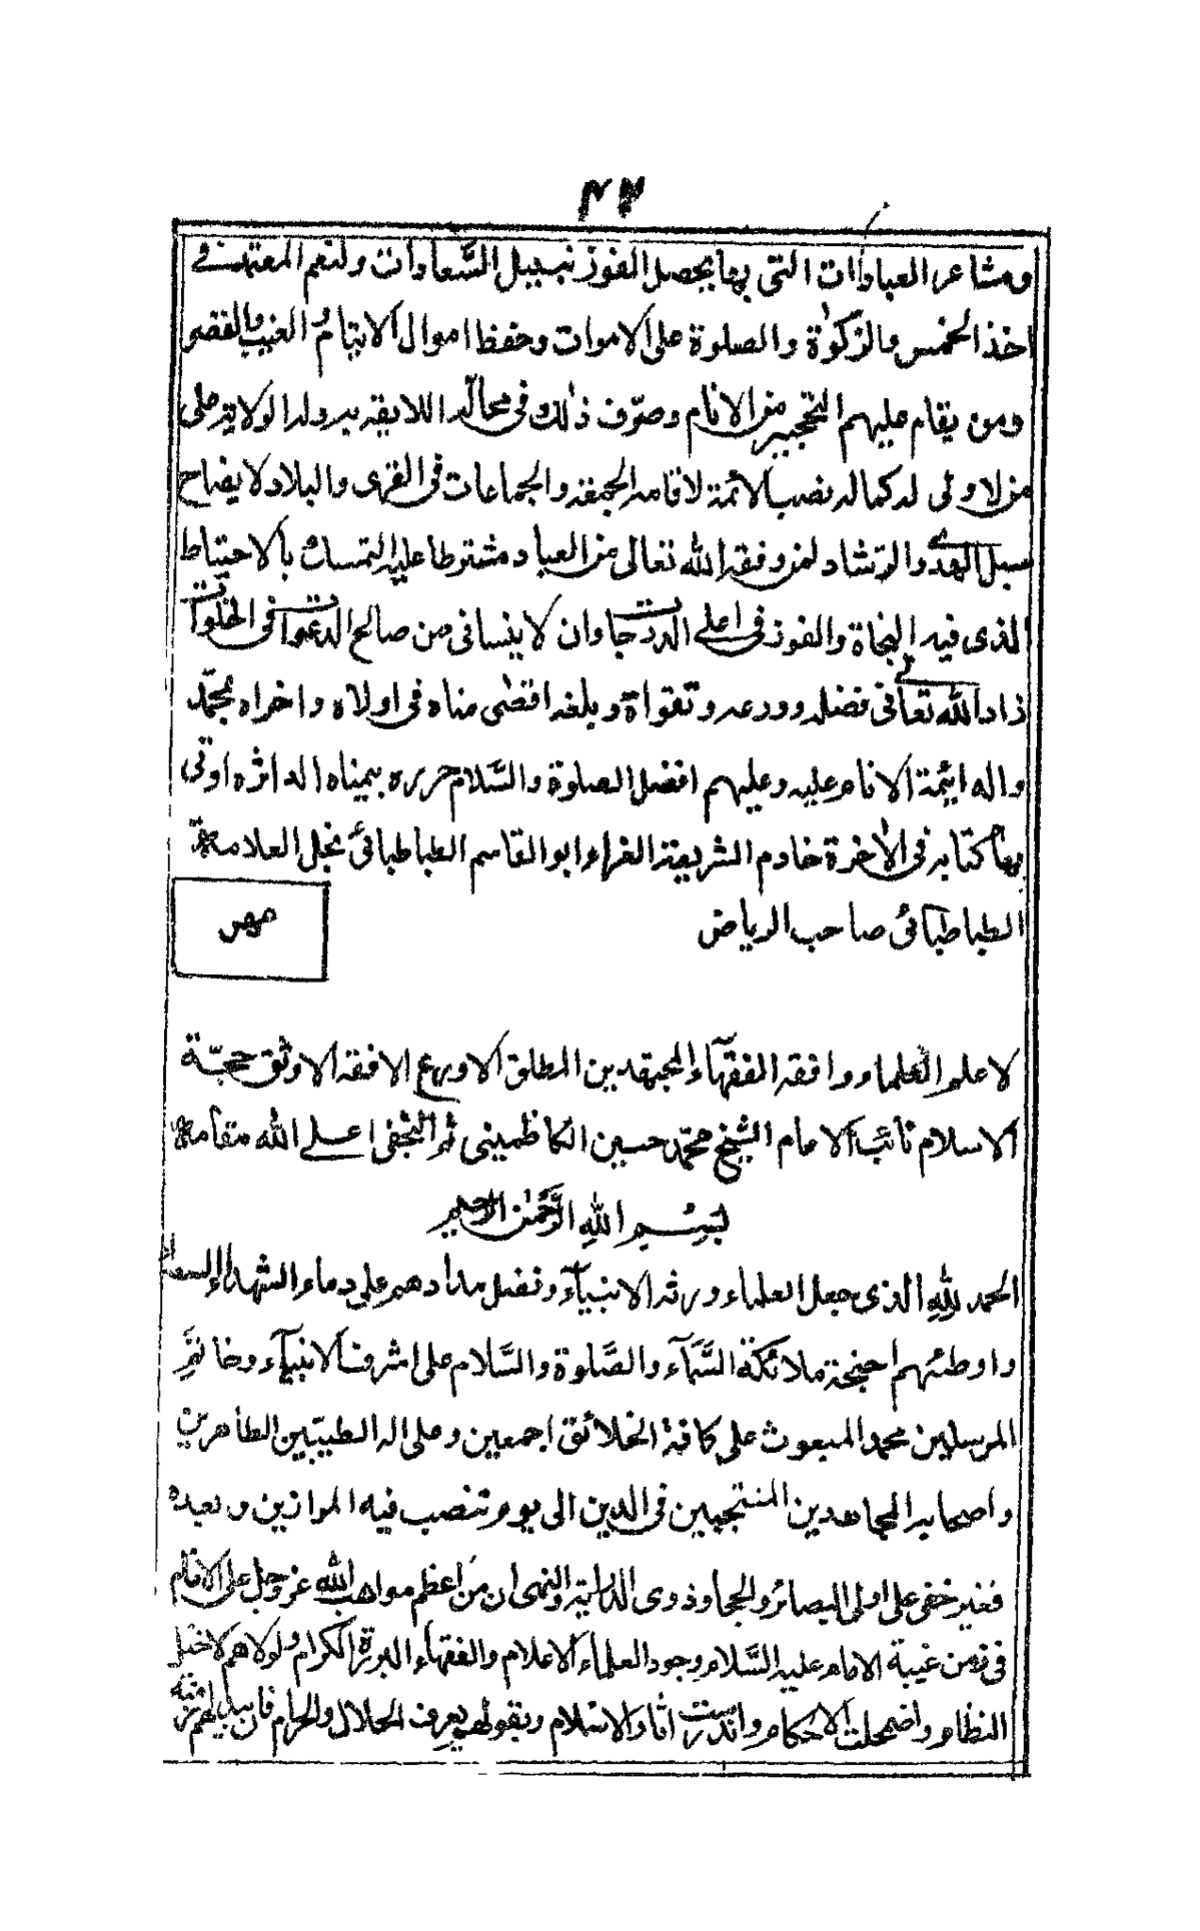 ۴۷
ومشاعر العبادات التى بها يحصل الفوز بسبيل السّعادات ولنعم المعتمد فى
اخذ الخمس والزكوٰة والصلوة على الاموات وحفظ اموال الايتام والغيب والقصر
ومن يقام عليهم التحجير من الانام وصرّف ذٰلك فى محالّه اللايقه به وله الولاية على
من لا ولى له كما له نصب الائمة لاقامه الجمعة والجماعات فى القرى والبلاد لايضاح
سبل الهدى والرشاد لمن وفقه الله تعالى من العباد مشترطا عليه التمسك بالاحتياط
الذى فيه النجاة والفوز فى اعلى الدرجات وان لا ينسانى من صالح الدعوات فى الخلوات
زاد الله تعالى فى فضله وورعه وتقواة وبلغه اقصٰى مناه فى اولاه واخراه بمحمّد
واله ائمة الانام عليه وعليهم افضل الصلوة والسّلام حرره بيمناه الداثره اوتى
بها كتابه فى الاخرة خادم الشريعة الغراء ابو القاسم الطباطبائى نجل العلامة
الطباطبائى صاحب الرياض
مهر
لاعلم العلماء وافقه الفقهآء المجتهدين المطلق الاورع الافقه الاوثق حجّة
الاسلام نائب الامام الشيخ محمّد حسين الكاظمينى ثم النجفى اعلى الله مقامه
بسم الله الرّحمٰن الرحيم
الحمد لله الذى جعل العلماء ورثه الانبيآء وفضل مدادهم على دماء الشهداء السعداء
واوطئهم اجنحة ملائكة السّمآء والصّلوة والسّلام على اشرف الانبيآء وخاتم
المرسلين محمد المبعوث على كافة الخلائق اجمعين وعلى اله الطيبّين الطاهرين
واصحابه المجاهدين المنتجبين فى الدين الى يوم تنصب فيه الموازين وبعده
فغير خفى على اولى البصائر والحجا وذوى الدراية والنهى ان من اعظم مواهب الله عز وجل على الانام
فى زمن غيبة الامام عليه السّلام وجود العلماء الاعلام والفقهاء البررة الكرام ولولاهم لاختل
النظام واضمحلت الاحكام واندرست اثار الاسلام وبقولهم يعرف الحلال والحرام